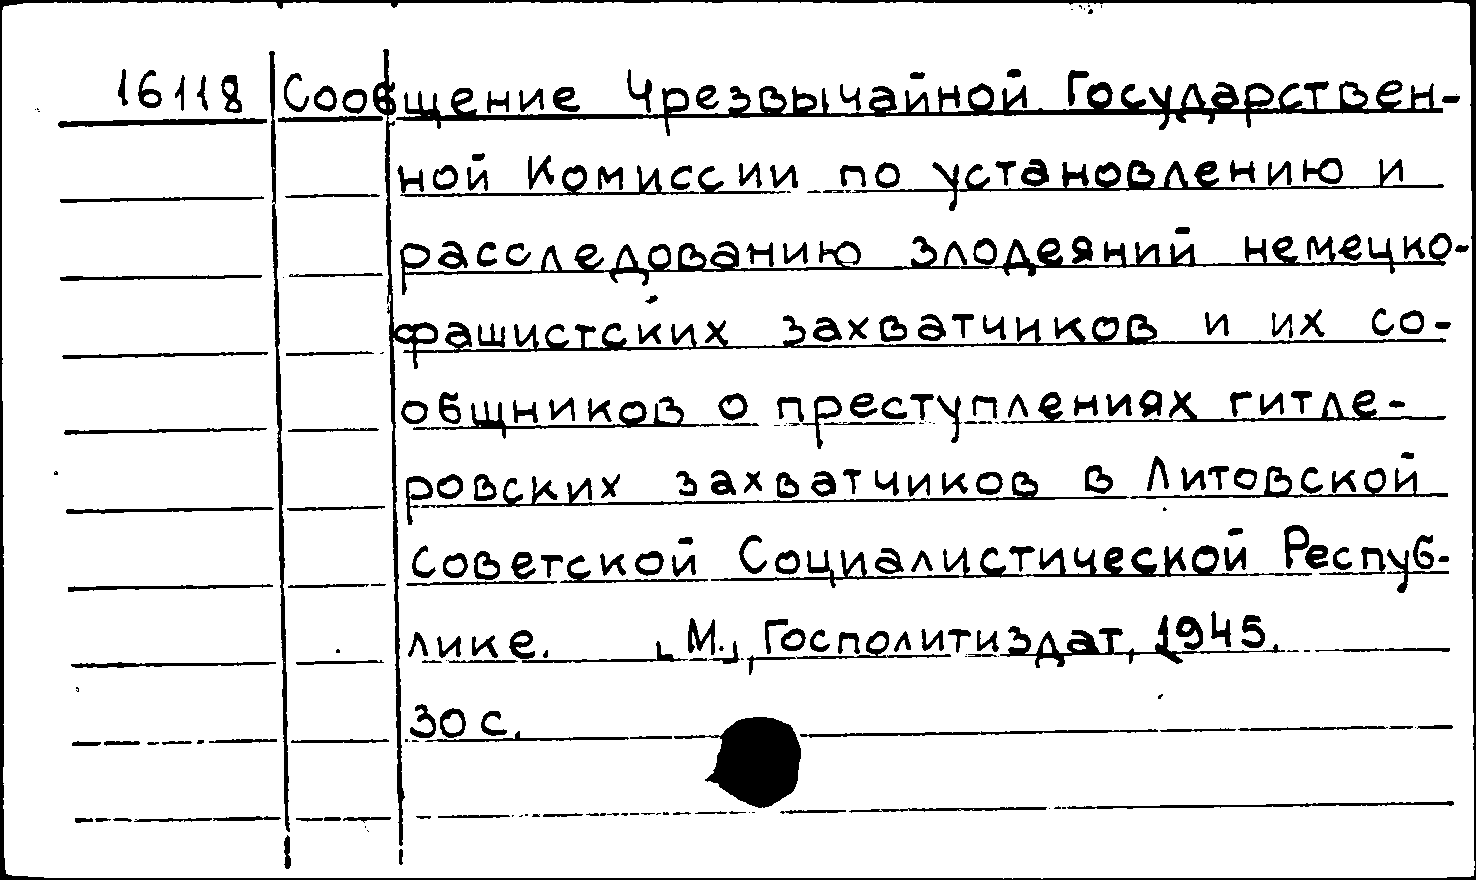 16118 Сообщение Чрезвычайной Государствен-
ной Комиссии по установлению и
расследованию злодеяний немецко-
фашистских захватчиков и их со-
общников о преступлениях гитле-
ровских захватчиков в Литовской
Советской Социалистической Респуб-
лике. [М.], Госполитиздат, 1945.
30 с.